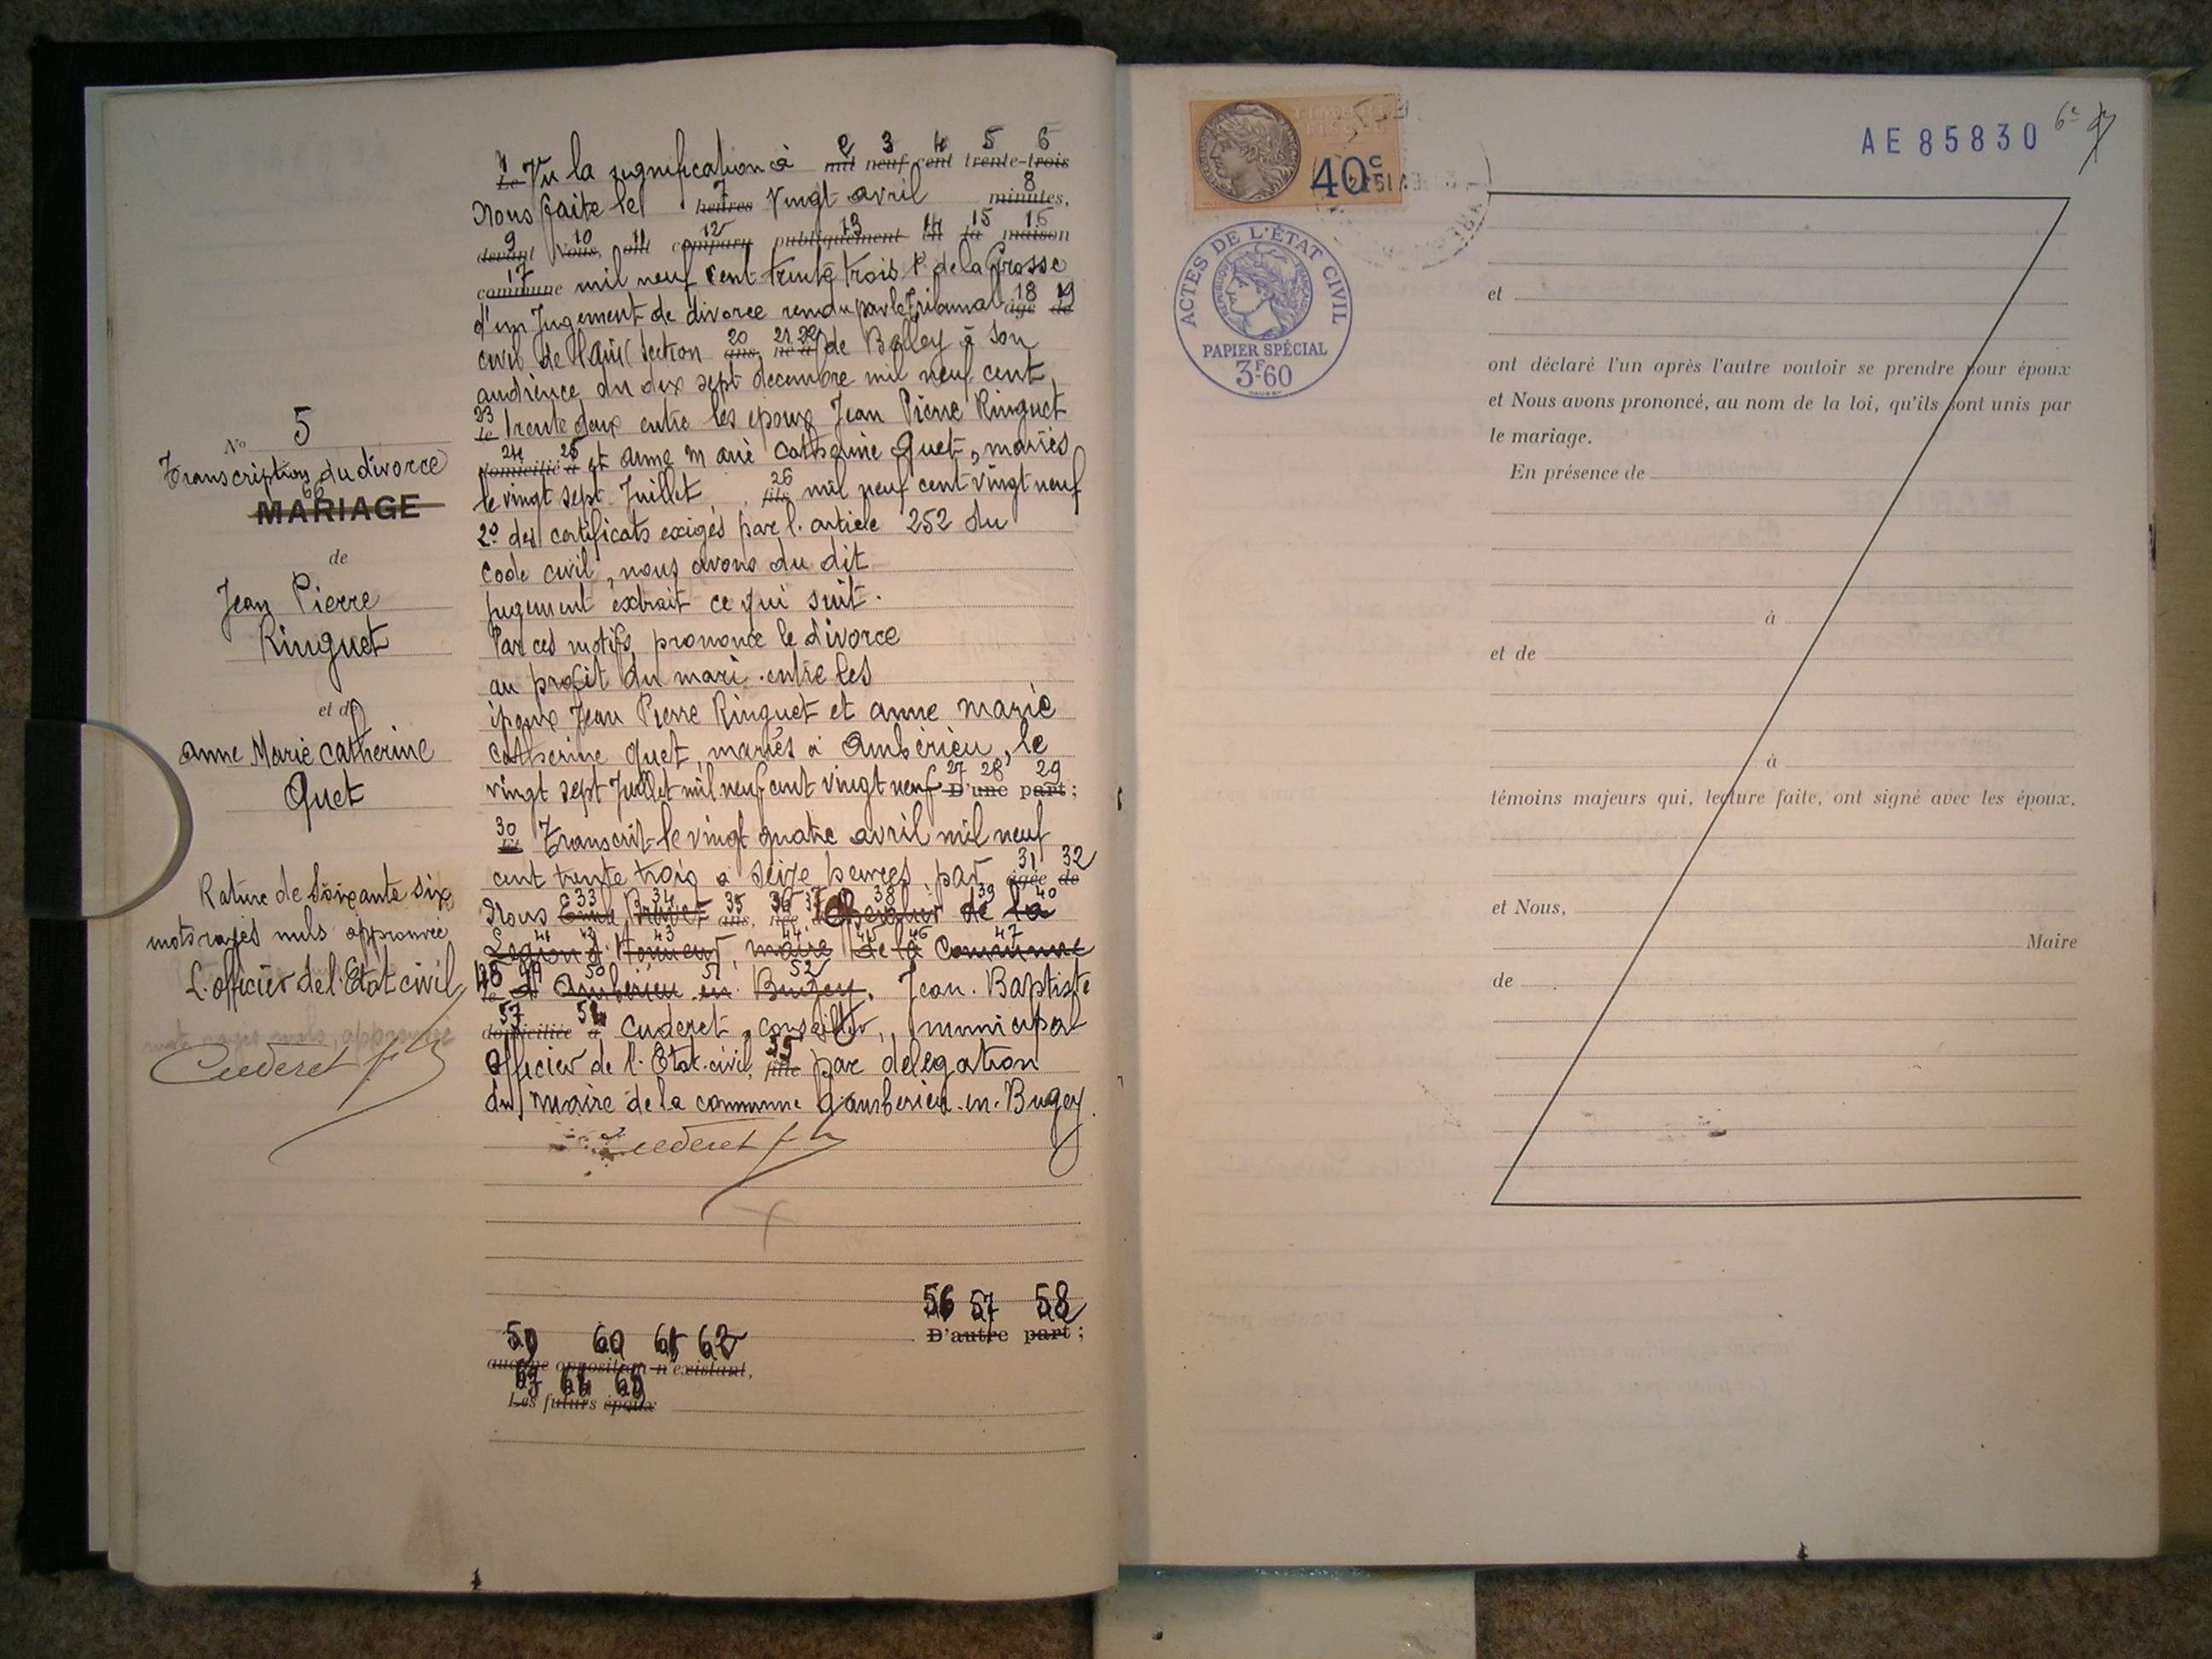 N° 5
Transcription du divorce
66
MARIAGE
de
Jean Pierre
Ringuet
et de
Anne Marie Catherine
Quet
Rature de Soixante six
mots rayés nuls approuvée
L'officier de l'Etat civil
Cuderet
1 2 3 4 5 6
Le Vu la signification à mil neuf cent trente-trois
7 8
Nous faite le heures vingt avril minutes,
9 10 11 12 13 14 15 16
devant Nous, ont comparu publiquement en la maison
17
commune mil neuf cent trente trois 1° de la Grosse
18 19
d'un Jugement de divorce rendu par le Tribunal âgé de
20 21 22
civil de l'Ain (section ans, né à de Belley à son
audience du dix sept decembre mil neuf cent
23
le trente deux entre les époux Jean Pierre Ringuet
24 25
domicilié à et Anne Marie Catherine Quet, mariés
26
le vingt sept Juillet fils mil neuf cent vingt neuf
2° des certificats exigés par l'article 252 du
Code civil, nous avons du dit
jugement extrait ce qui suit.
Par ces motifs, prononce le divorce
au profit du mari entre les
époux Jean Pierre Ringuet et Anne Marie
Catherine Quet, mariés à Ambérieu, le
27 28 29
vingt sept Juillet mil neuf cent vingt neuf D'une part ;
30
Et Transcrit le vingt quatre avril mil neuf
31 32
cent trente trois à seize heures par âgée de
33 34 35 36 37 38 39 40
Nous ans, née à Chevalier de la
41 42 43 44 45 46 47
Legion d'Honneur, maire de la Commune
48 49 50 51 52
le d'Ambérieu en Bugey. Jean Baptiste
53 54
domiciliée à Cuderet, conseiller, municipal
55
officier de l'Etat-civil, fille par delegation
du maire de la commune d'Amberieu-en-Bugey.
Cuderet
56 57 58
D'autre part ;
59 60 61 62
aucune opposition n'existant,
63 64 65
Les futurs époux
40c
AE 85830
6e
ACTES DE L'ÉTAT CIVIL
RÉPUBLIQUE FRANÇAISE
PAPIER SPÉCIAL
3F60
et
ont déclaré l'un après l'autre vouloir se prendre pour époux
et Nous avons prononcé, au nom de la loi, qu'ils sont unis par
le mariage.
En présence de
à
et de
à
témoins majeurs qui, lecture faite, ont signé avec les époux,
et Nous,
Maire
de